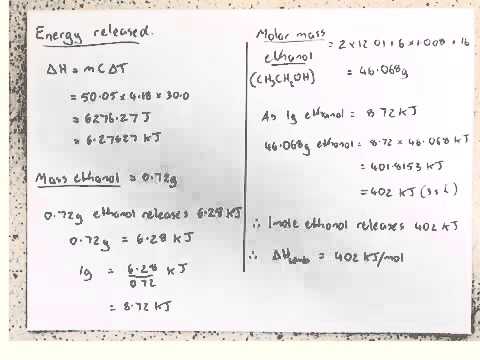 Energy released.
ΔH = mCΔT
= 50.05 x 4.18 x 30.0
= 6276.27 J
= 6.27627 KJ
Mass ethanol = 0.72g
0.72g ethanol releases 6.28 KJ
0.72g = 6.28 KJ
1g = 6.28/0.72 KJ
= 8.72 KJ
Molar mass ethanol = 2x12.01+6x1.008+16
(CH3CH2OH) = 46.068g
As 1g ethanol = 8.72 KJ
46.068g ethanol = 8.72 x 46.068 KJ
= 401.8153 KJ
= 402 KJ (3s.f.)
∴ 1mole ethanol releases 402 KJ
∴ ΔHcomb = 402 KJ/mol